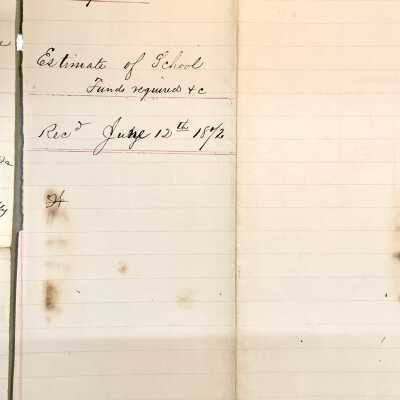 Estimate of School
Funds required &c
Rec^d June 12^th 1872
H